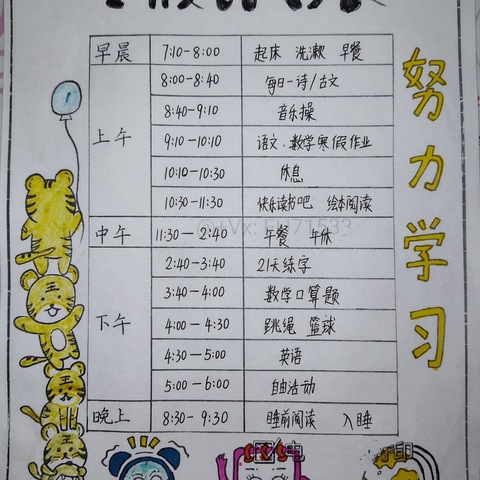 早晨 7:10-8:00 起床 洗漱 早餐
8:00-8:40 每日一诗/古文
8:40-9:10 音乐操
上午 9:10-10:10 语文.数学寒假作业
10:10-10:30 休息
10:30-11:30 快乐读书吧 绘本阅读
中午 11:30-2:40 午餐 午休
2:40-3:40 21天练字
3:40-4:00 数学口算题
下午 4:00-4:30 跳绳 篮球
4:30-5:00 英语
5:00-6:00 自由活动
晚上 8:30-9:30 睡前阅读 入睡
努力学习